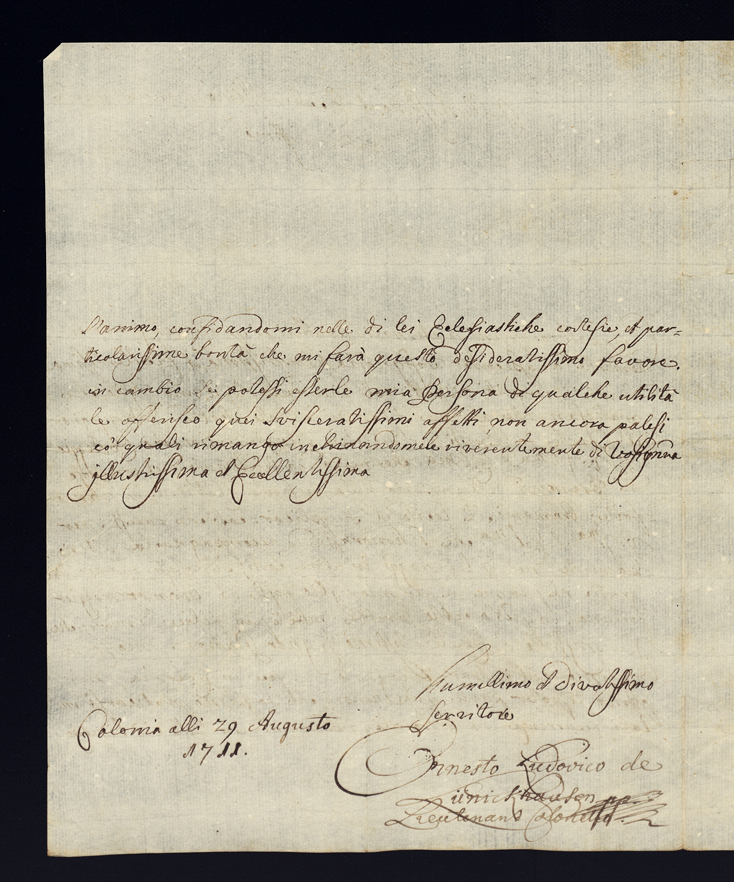 l'animo, confidandomi nelle di lei Eclesiastiche cortesie, et par=
ticolarissime bontà che mi farà questo desideratissimo favore.
in cambio se potessi esserle mia Persona di qualche utilità
le offerisco quei svisceratissimi affetti non ancora palesi
co' quali rimango inchinandomele riverentemente di Vossignria
illustrissima et Eccellentissima
Humillimo et divotissimo
servitore
Colonia alli 29 Augusto
1711.
Ernesto Ludovico de
Lieutenant Colonello